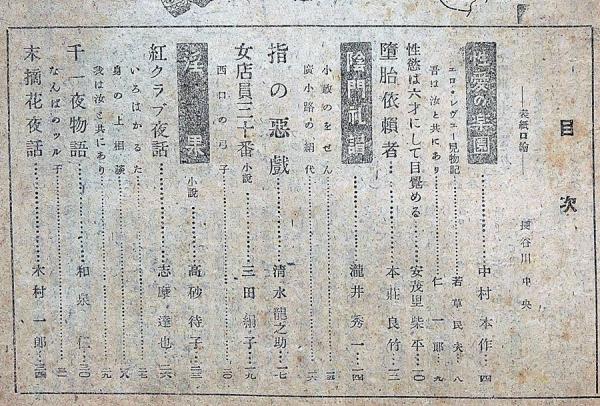 目次
――表紙口絵――長谷川中央
性愛の楽園………中村本作…四
エロ・レヴュー見物記………若草民夫…八
吾は汝と共にあり………仁一郎…九
性慾は六才にして目覚める………安茂里柴平…一〇
堕胎依頼者………本荘良竹…一二
陰門礼讃………瀧井秀一…一四
小敷のをせん………一五
廣小路の絹代………一六
指の悪戯………清水龍之助…一七
女店員三十番 小説………三田絹子…一九
西口の弓子………二〇
淫 果 小説………高砂待子…二三
紅クラブ夜話………志摩達也…二六
いろはかるた………二七
身の上相談………二八
我は汝と共にあり………二九
千一夜物語………和泉仁…三〇
なんばのツル子………三一
末摘花夜話………木村一郎…三四